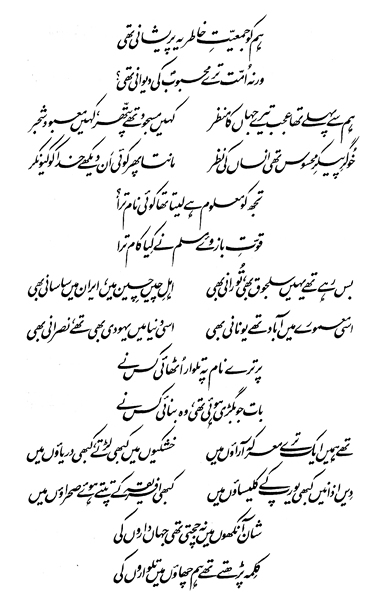 ہم کو جمعیتِ خاطر یہ پریشانی تھی
ورنہ اُمت ترے محبوب کی دیوانی تھی؟
ہم سے پہلے تھا عجب تیرے جہاں کا منظر کہیں مسجود تھے پتھر، کہیں معبود شجر
خوگرِ پیکرِ محسوس تھی انساں کی نظر مانتا پھر کوئی اَن دیکھے خدا کو کیونکر
تجھ کو معلوم ہے لیتا تھا کوئی نام ترا؟
قوتِ بازوئے مسلم نے کیا کام ترا
بس رہے تھے یہیں سلجوق بھی، تُورانی بھی اہلِ چیں چین میں، ایران میں ساسانی بھی
اسی معمورے میں آباد تھے یونانی بھی اسی دنیا میں یہودی بھی تھے، نصرانی بھی
پر ترے نام پہ تلوار اُٹھائی کس نے
بات جو بگڑی ہوئی تھی، وہ بنائی کس نے
تھے ہمیں ایک ترے معرکہ آراؤں میں خشکیوں میں کبھی لڑتے، کبھی دریاؤں میں
دیں اذانیں کبھی یورپ کے کلیساؤں میں کبھی افریقہ کے تپتے ہوئے صحراؤں میں
شان آنکھوں میں نہ جچتی تھی جہاں داروں کی
کلمہ پڑھتے تھے ہم چھاؤں میں تلواروں کی